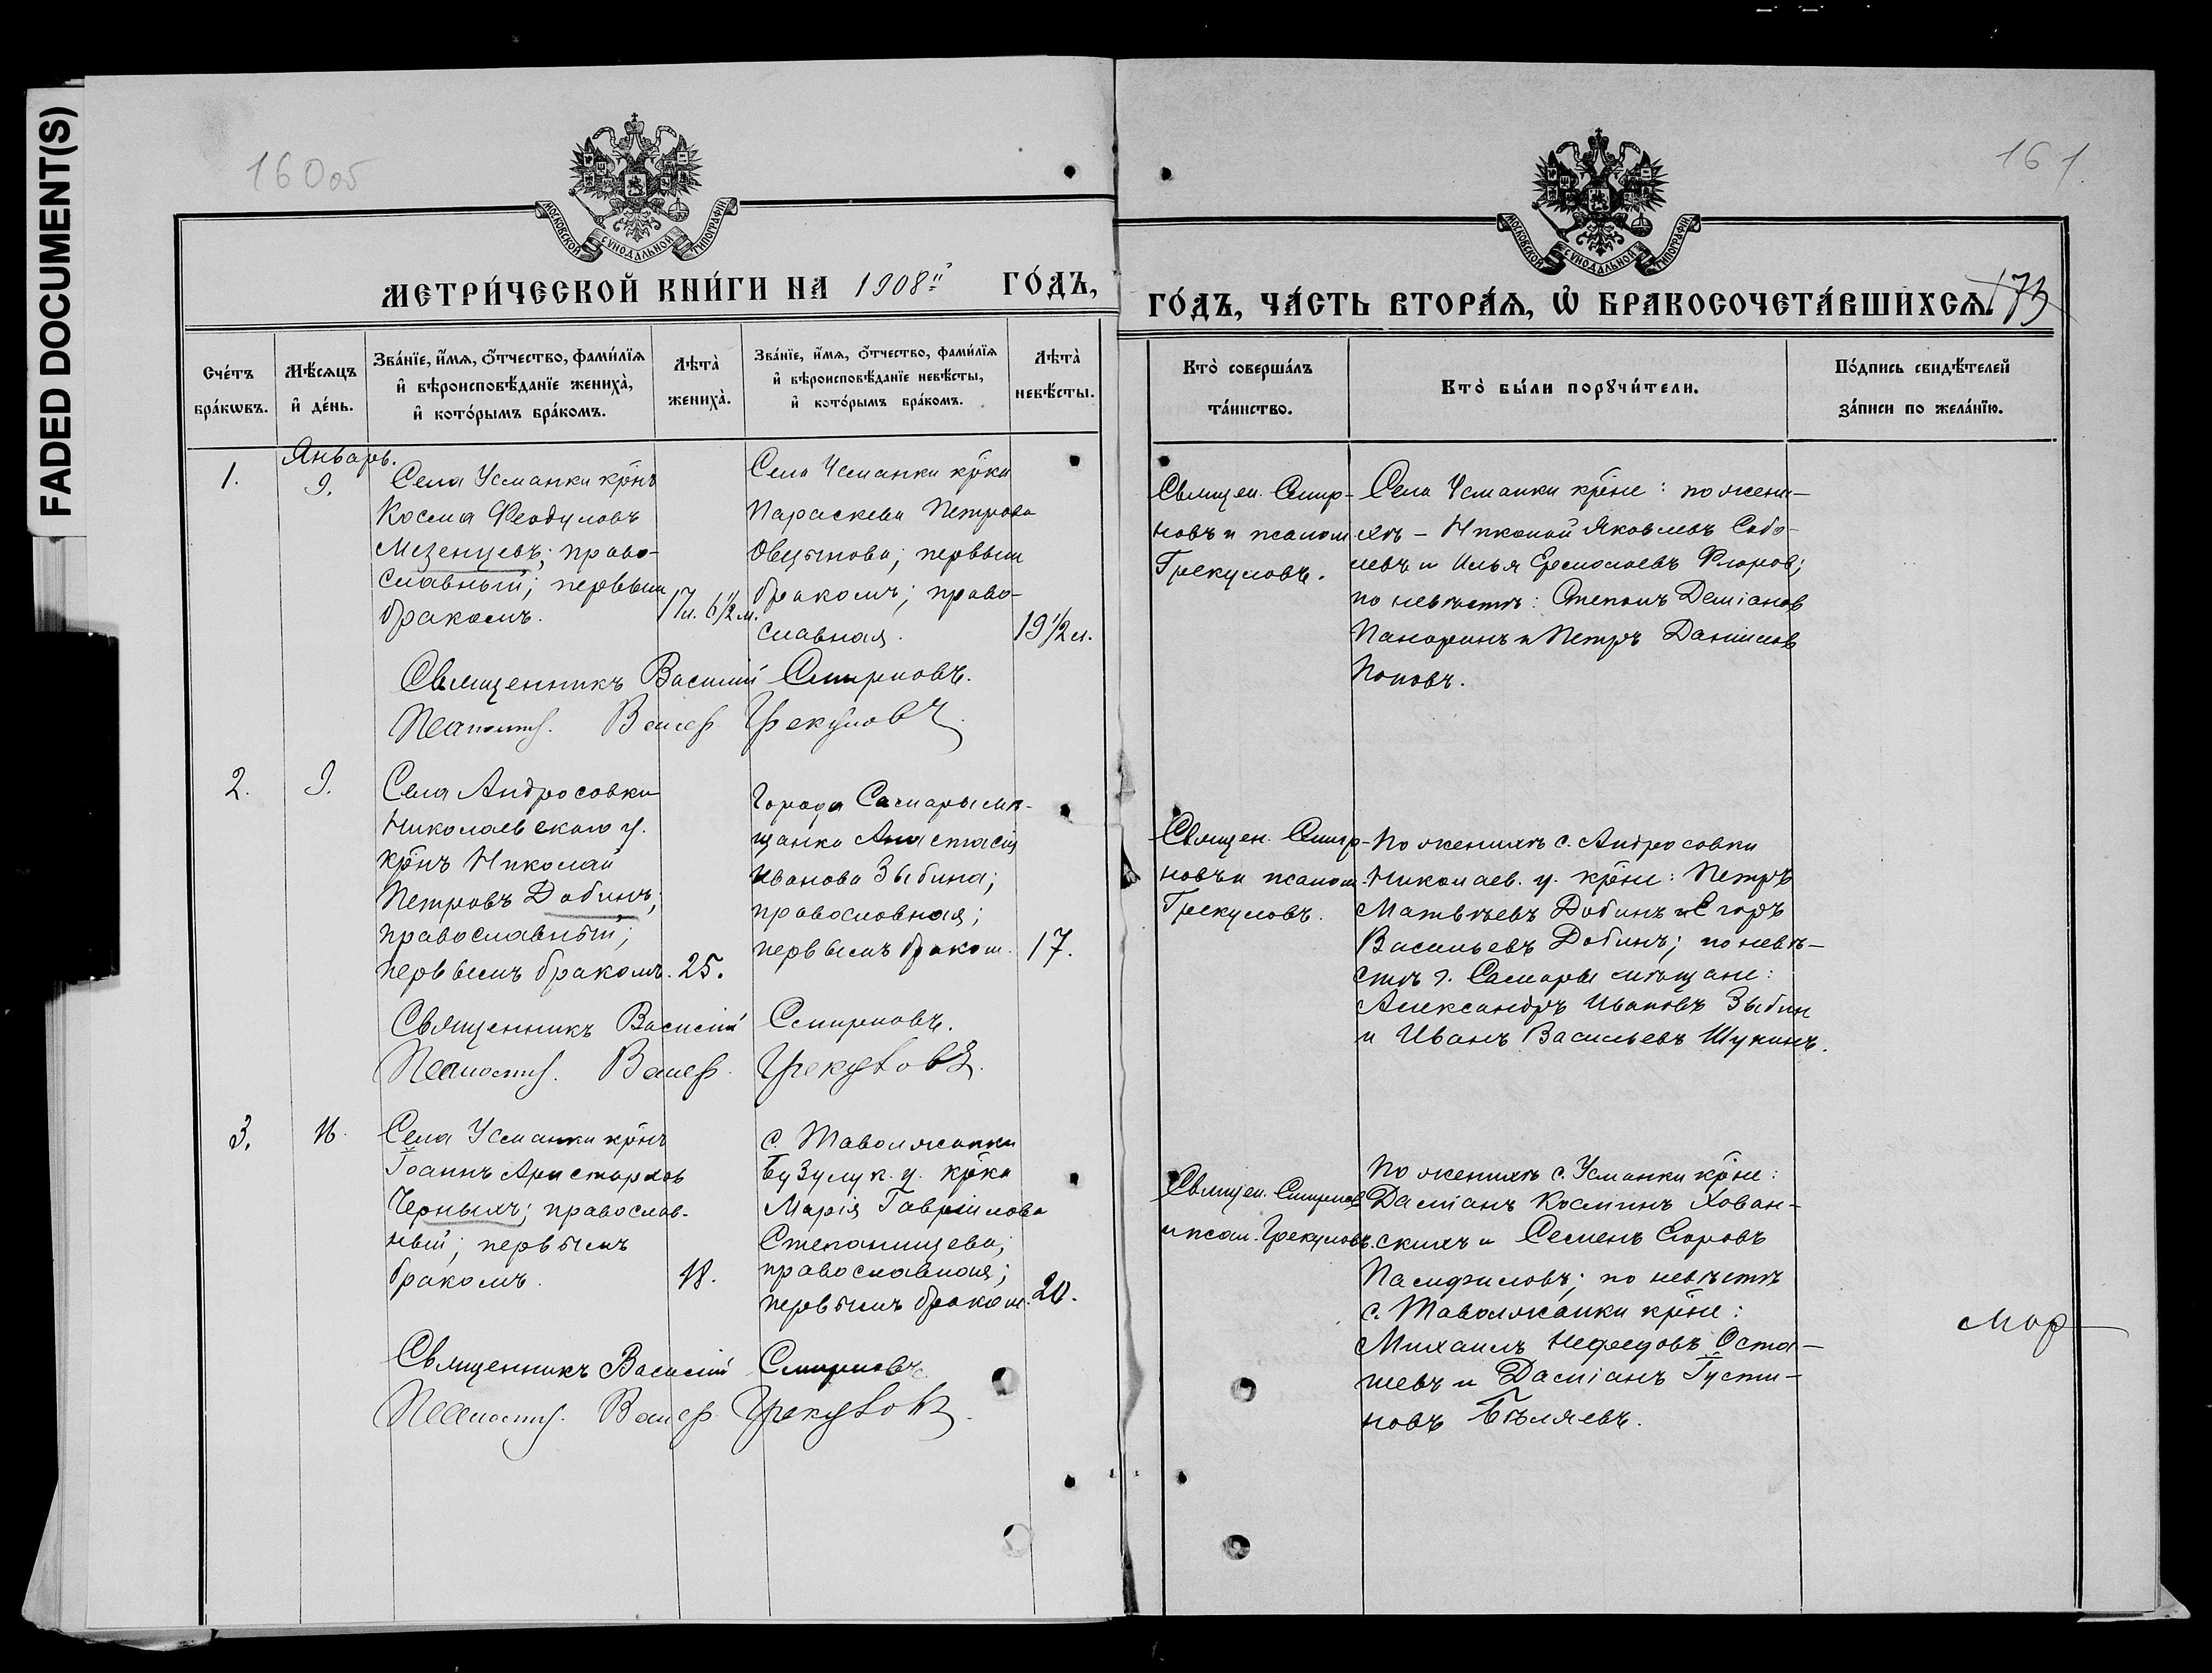 FADED DOCUMENT(S)
160об
МОСКОВСКОЙ СѴНОДАЛЬНОЙ ТИПОГРАФІИ
МЕТРИ́ЧЕСКОЙ КНИ́ГИ НА 1908й ГО́ДЪ,
Сче́тъ бра́кѡвъ.
Мѣ́сяцъ и҆ де́нь.
Зва́нїе, и҆́мѧ, ѻ҆́тчество, фами́лїѧ и҆ вѣроисповѣ́данїе жениха̀, и҆ кото́рымъ бра́комъ.
Лѣта̀ жениха̀.
Зва́нїе, и҆́мѧ, ѻ҆́тчество, фами́лїѧ и҆ вѣроисповѣ́данїе невѣ́сты, и҆ кото́рымъ бра́комъ.
Лѣта̀ невѣ́сты.
1.
Январь.
9.
Села Усманки крнъ
Косма Феодуловъ
Мезенцевъ; право-
славный; первым
бракомъ.
17 л. 6½ м.
Села Усманки крка
Параскева Петрова
Овцынова; первым
бракомъ; право-
славная.
19½ л.
Священникъ Василій Смирновъ.
Псаломщ. Валер. Грекуловъ
2.
9.
Села Андросовки
Николаевскаго у.
крнъ Николай
Петровъ Добинъ;
православный;
первымъ бракомъ.
25.
Города Самары мѣ-
щанка Анастасія
Иванова Зыбина;
православная;
первымъ браком.
17.
Священникъ Василій Смирновъ.
Псаломщ. Валер. Грекуловъ.
3.
16.
Села Усманки крнъ
Іоаннъ Аристархов
Черныхъ; православ-
ный; первымъ
бракомъ.
18.
с. Таволжанки
Бузулук. у. крка
Марія Гавріилова
Степанищева;
православная;
первымъ браком.
20.
Священникъ Василій Смирновъ.
Псаломщ. Валер. Грекуловъ.
161
173
МОСКОВСКОЙ СѴНОДАЛЬНОЙ ТИПОГРАФІИ
ГО́ДЪ, ЧА́СТЬ ВТОРА́Ѧ, Ѡ҆ БРАКОСОЧЕТА́ВШИХСѦ.
Кто̀ соверша́лъ та́инство.
Кто̀ бы́ли порꙋчи́тели.
По́дпись свидѣ́телей за́писи по жела́нїю.
Священ. Смир-
новъ и псалом.
Грекуловъ.
Села Усманки крне: по жени-
хѣ – Николай Яковлевъ Собо-
левъ и Илья Ермолаевъ Фпоров;
по невѣстѣ: Степанъ Деміанов
Панаринъ и Петръ Данилов
Поповъ.
Священ. Смир-
новъ и псалом.
Грекуловъ.
По женихѣ с. Андросовки
Николаев. у. крне: Петръ
Матвѣевъ Добинъ и Егоръ
Васильевъ Добинъ; по невѣ-
стѣ г. Самары мѣщане:
Александръ Ивановъ Зыбин
и Иванъ Васильевъ Щукинъ.
Священ. Смирнов
и псал. Грекуловъ.
По женихѣ с. Усманки крне:
Даміанъ Косминъ Хован-
скихъ и Семенъ Егоровъ
Памфиловъ; по невѣстѣ
с. Таволжанки крне:
Михаилъ Нефедовъ Оста-
шевъ и Даміанъ Іусти-
новъ Бѣляевъ.